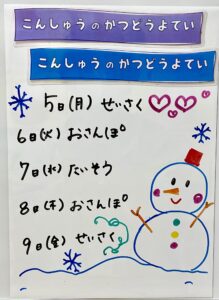 こんしゅうのかつどうよてい
こんしゅうのかつどうよてい
5日(月) せいさく
6日(火) おさんぽ
7日(水) たいそう
8日(木) おさんぽ
9日(金) せいさく